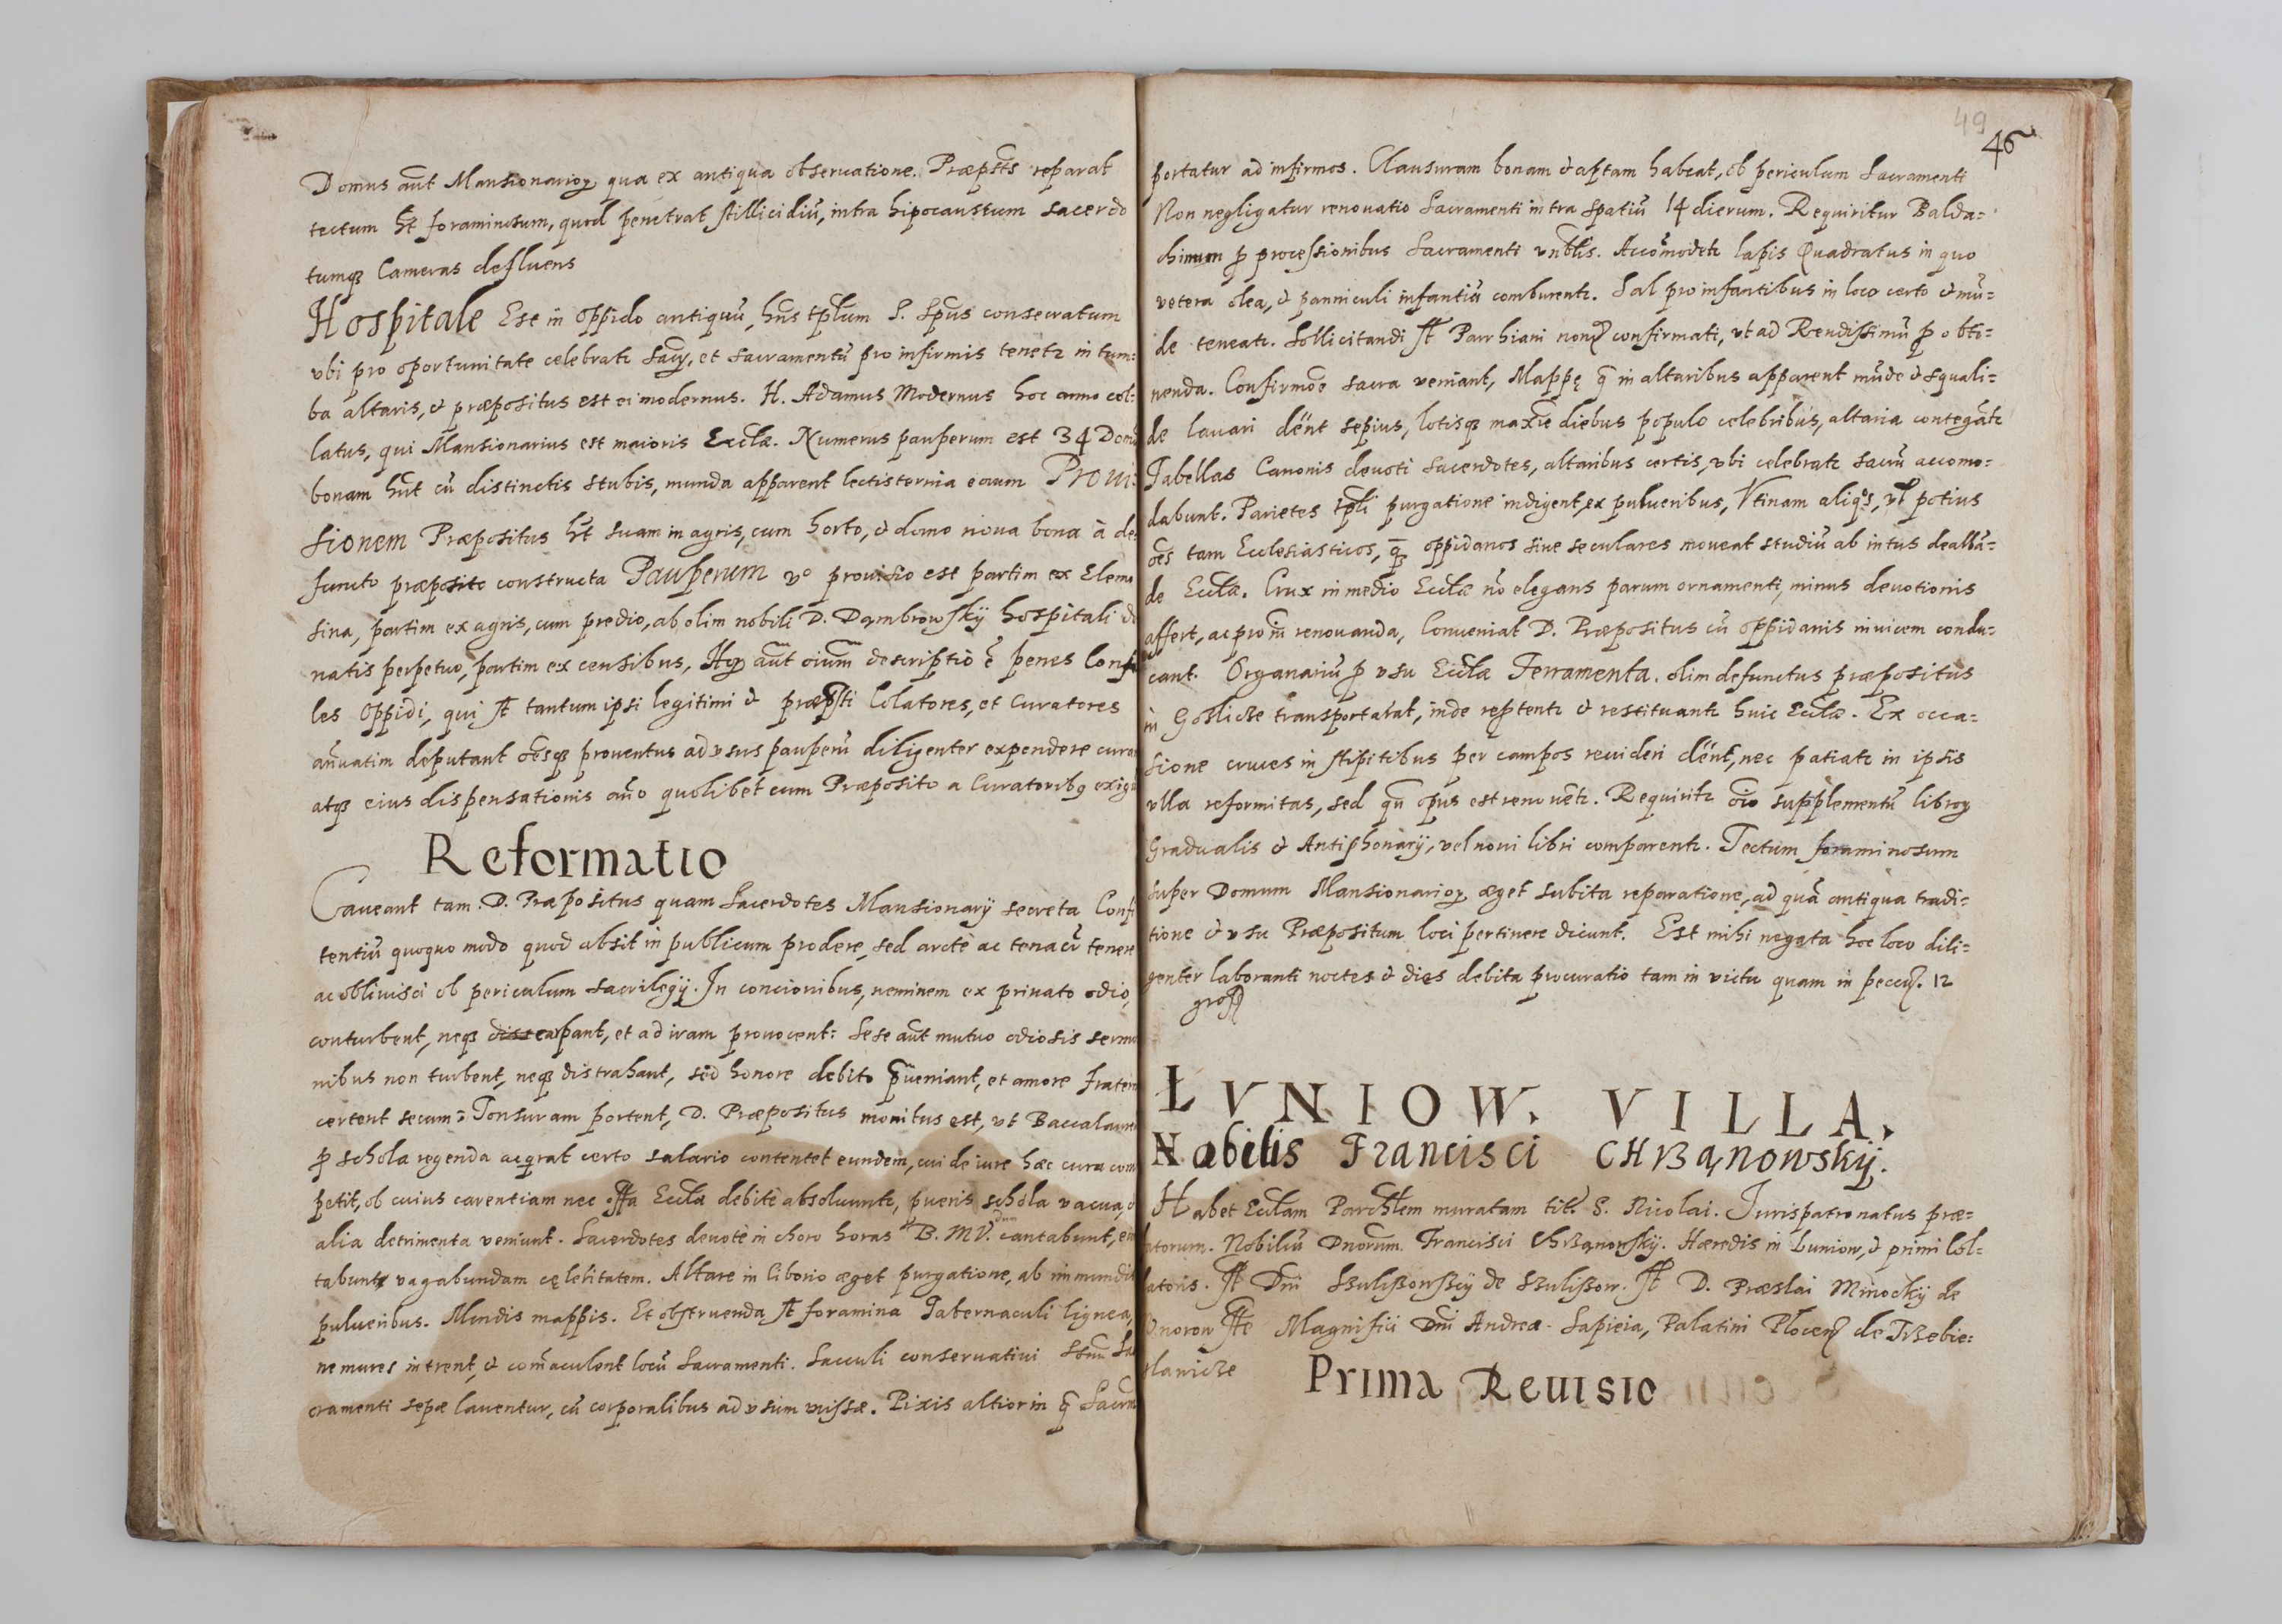 Domus aut Mansionarioꝝ qua ex antiqua obseruatione. Præpsts reparat
tectum ht foraminosum, quod penetrat stillicidiū, intra hipocaustum sacerdo
tumqꝫ Cameras defluens
Hospitale Est in oppido antiquū, hns tplum S. Spus consecratum
vbi pro oportunitate celebratr sacꝝ, et sacramentū pro infirmis tenetr in tum:
ba altaris, & præpositus est ei modernus. H. Adamus Modernus hoc anno col:
latus, qui Mansionarius est maioris Ecclæ. Numerus pauperum est 34 Domū
bonam hnt cū distinctis stubis, munda apparent lectisternia eorum Proui:
sionem Præpositus ht suam in agris, cum horto, & domo noua bona à de:
functo præposito constructa Pauperum vo prouisio est partim ex Elemo
sina, partim ex agris, cum predio, ab olim nobili D. Dąmbrowskÿ hospitali do
natis perpetuo, partim ex censibus, Hoꝝ aut oium descriptio ē penes Consu
les Oppidi, qui st tantum ipsi legitimi & præpsti Colatores, et Curatores
añuatim deputant oēsqꝫ prouentus ad vsus pauperū diligenter expendere curan
atqꝫ eius dispensationis año quolibet cum Præposito a Curatoribꝫ exigu
Reformatio
Caueant tam D. Præpositus quam Sacerdotes Mansionarÿ secreta Confi
tentiū quoquo modo quod absit in publicum prodere, sed arcte ac tenacū tenere
ac obliuisci ob periculum sacrilegÿ. In concionibus, neminem ex priuato odio,
conturbent, neqꝫ carpant, et ad iram prouocent: Sese aut mutuo odiosis sermo
nibus non turbent, neqꝫ distrahant, sed honore debito p̄ueniant, et amore fratern
certent secum: Tonsuram portent, D. Præpositus monitus est, vt Baccalaure
ꝓ schola regenda acqrat certo salario contentet eundem, cui de iure hæc cura com
petit, ob cuius carentiam nec offa Ecclæ debitè absoluuntr, pueris schola vacua, &
alia detrimenta veniunt. Sacerdotes deuotè in choro horas B. M V. cantabunt, eui
tabuntqꝫ vagabundam cęleritatem. Altare in Ciborio æget purgatione, ab immundis
pulueribus. Mundis mappis. Et obstruenda st foramina Tabernaculi lignea,
ne mures intrent, & com̄aculent locū Sacramenti. Sacculi conseruatiui Sa
cramenti sepæ lauentur, cū corporalibus ad vsum missæ. Pixis altior in q Sacrm
49
46
portatur ad infirmos. Clausuram bonam & aptam habeat, ob periculum Sacramenti
Non negligatur renouatio Sacramenti intra spatiū 14 dierum. Requiritur Balda=
chinum ꝓ processionibus Sacramenti vnblis. Accōmodetr lapis Quadratus in quo
vetera olea, & panniculi infantiū comburentr. Sal pro infantibus in loco certo & mū=
de teneatr. Sollicitandi st Parrhiani nonꝫ confirmati, vt ad Rendissimū ꝓ obti=
nenda. Confirmōe sacra veniant, Mappę q in altaribus apparent mūde & squali=
de lauari dēnt sepius, lotisqꝫ maxīe diebus populo celebribus, altaria contegātr
Tabellas Canonis deuoti Sacerdotes, altaribus certis, vbi celebratr sacrū accomo=
dabunt. Parietes tpli purgatione indigent, ex pulueribus, Vtinam aliqs, vl potius
oēs tam Ecclesiasticos, q oppidanos siue seculares moueat studiū ab intus dealbā=
de Ecclæ. Crux in medio Ecclæ nō elegans parum ornamenti, minus deuotionis
affert, ac pro īn renouanda, Conueniat D. Præpositus cū oppidanis inuicem condu=
cant. Organariū ꝓ vsu Ecclæ Ferramenta. olim defunctus præpositus
in Goslicze transportarat, inde reptentr & restituantr huic Ecclæ. Ex occa=
sione cruces in stipitibus per campos reuideri dēnt, nec patiatr in ipsis
vlla reformitas, sed qn opus est renouētr. Requiritr oīo supplementū libroꝝ
Gradualis & Antiphonarÿ, vel noui libri comparentr. Tectum foraminosum
super Domum Mansionarioꝝ æget subita reparatione, ad quā antiqua tradi=
tione & vsu Præpositum loci pertinere dicunt. Est mihi negata hoc loco dili=
genter laboranti noctes & dies debita procuratio tam in victu quam in peccuꝫ. 12
gross
ŁVNIOW. VILLA.
Nobilis Francisci CHrząnowskÿ.
Habet Ecclam Parchlem muratam titl S. Nicolai. Jurispatronatus præ=
latorum. Nobiliū Dnorum. Francisci Chrząnowskÿ. Hæredis in Łuniow, & primi Col=
latoris. It Dni Szulißowskÿ de Szulißow. It D. Præslai Minockÿ de
Magnifici Dni Andreæ Sapieia, Palatini Płocenꝫ de Trzebie=
slawicze
Prima Reuisio